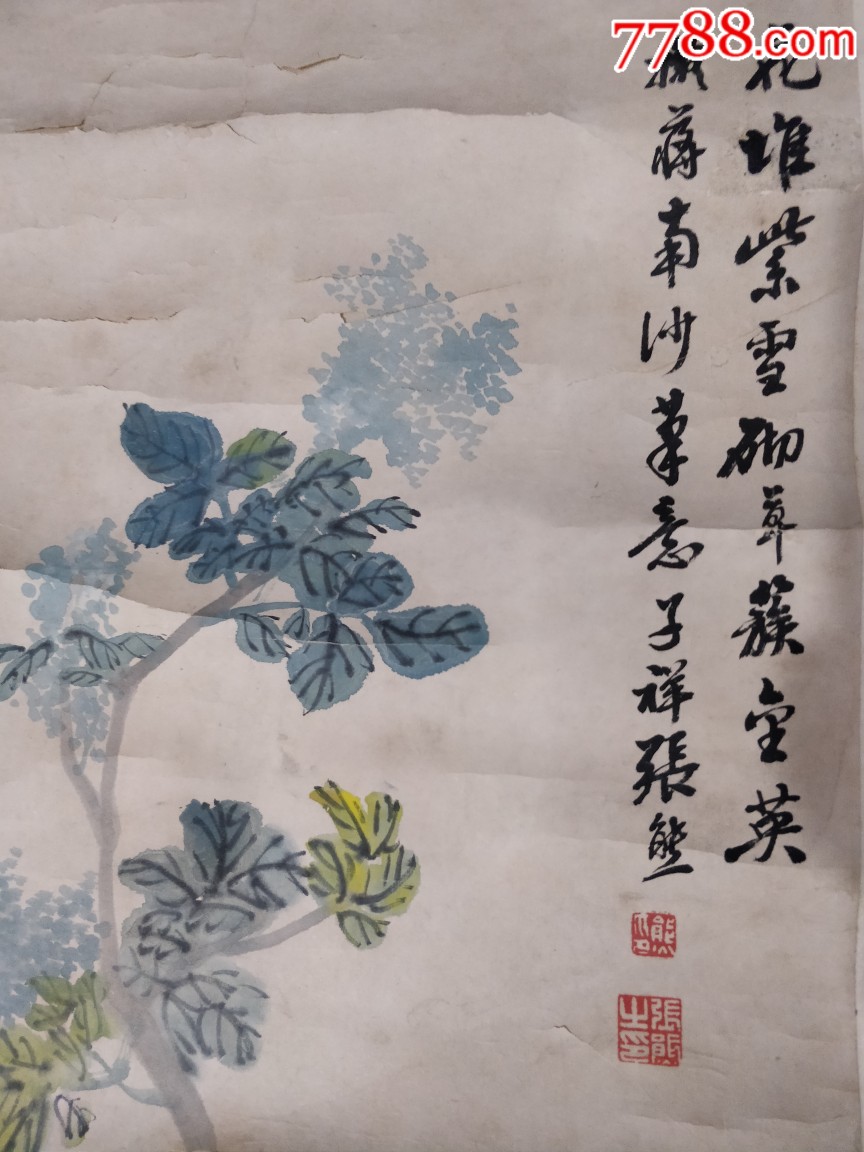 7788.com
花堆紫雪砌草簇金英
撫蔣南沙筆意子祥張熊
張熊之印